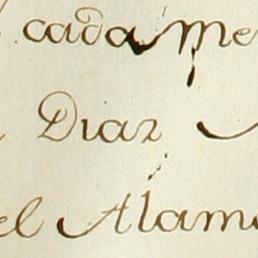 cada me
Diaz
el Alam